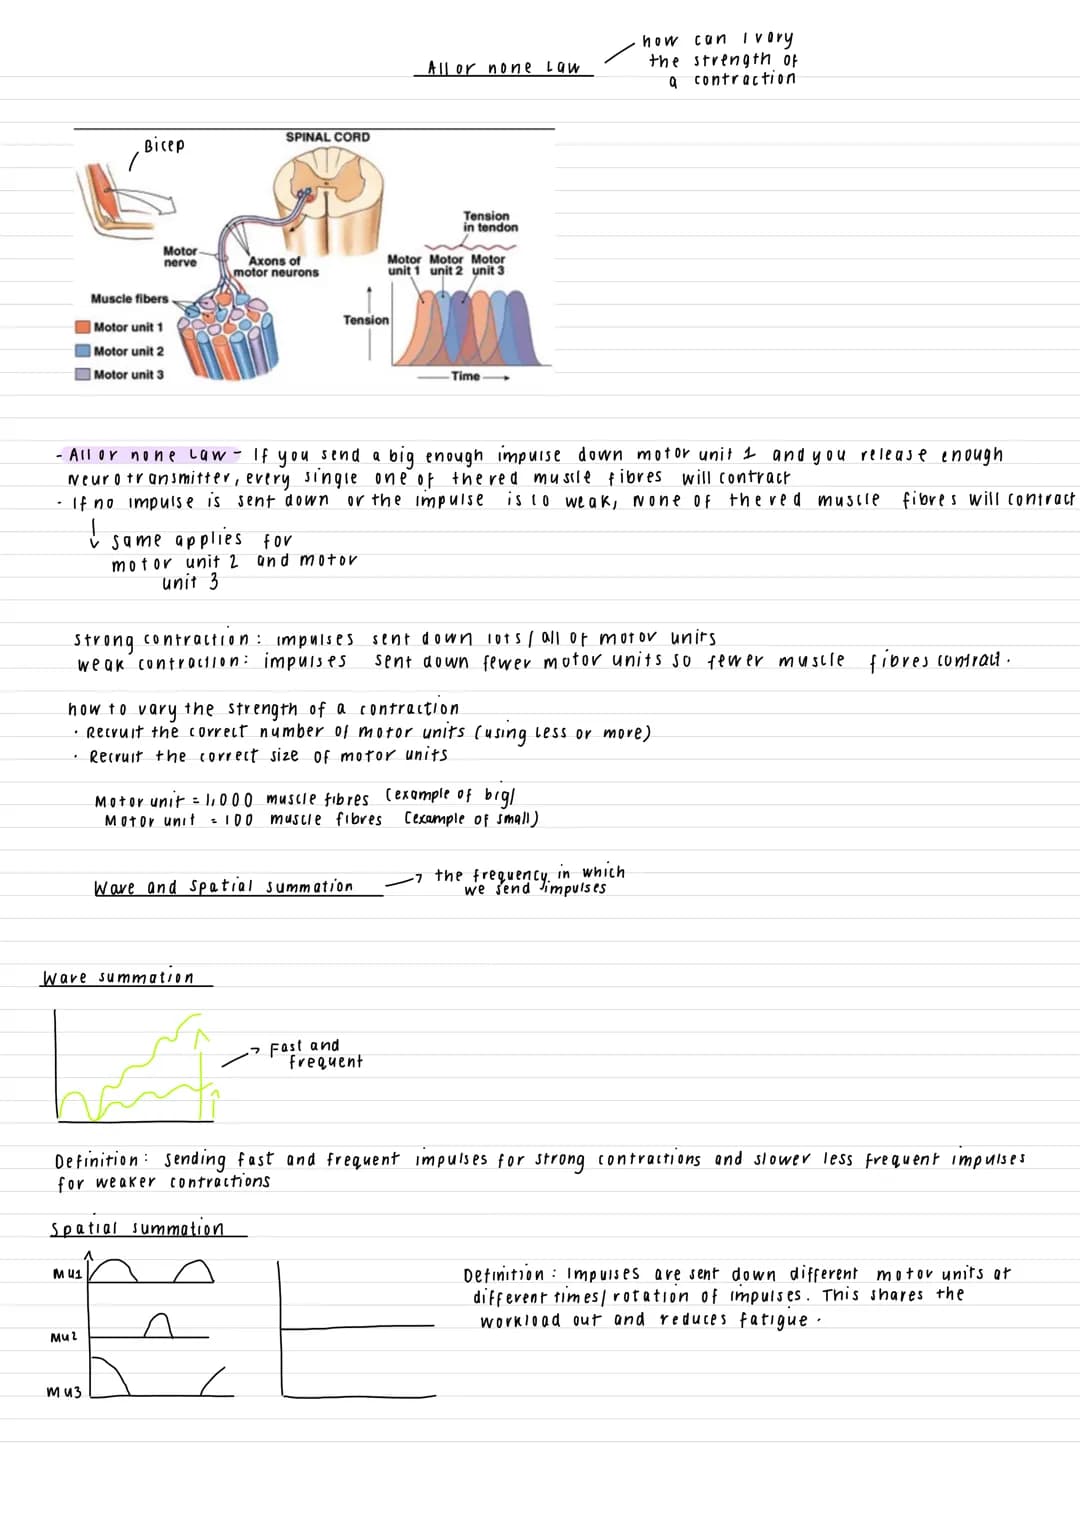 All or none Law
how can I vary
the strength of
a contraction
Bicep
SPINAL CORD
Tension
in tendon
Motor
nerve
Axons of
motor neurons
Motor Motor Motor
unit 1 unit 2 unit 3
Muscle fibers
Motor unit 1
Motor unit 2
Motor unit 3
Tension
Time
- All or none Law - If you send a big enough impulse down motor unit 1 and you release enough
Neurotransmitter, every single one of the red muscle fibres will contract
- If no impulse is sent down or the impulse is to weak, None of the red muscle fibres will contract
same applies for
motor unit 2 and motor
unit 3
Strong contraction: impulses sent down lots/all of motor units
weak contraction: impulses sent down fewer motor units so fewer muscle fibres contract.
how to vary the strength of a contraction
· Recruit the correct number of motor units (using less or more)
· Recruit the correct size of motor units
Motor unit = 1,000 muscle fibres (example of big)
Motor unit = 100 muscle fibres (example of small)
Wave and Spatial summation
the frequency in which
we send impulses
Wave summation
Fast and
frequent
Definition: Sending fast and frequent impulses for strong contractions and slower less frequent impulses
for weaker contractions
Spatial summation
MU1
MU2
MU3
Definition: Impulses are sent down different motor units at
different times/rotation of impulses. This shares the
workload out and reduces fatigue.